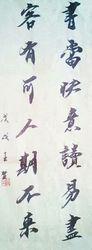 書當快意讀易盡
客有可人期不來
戊戌